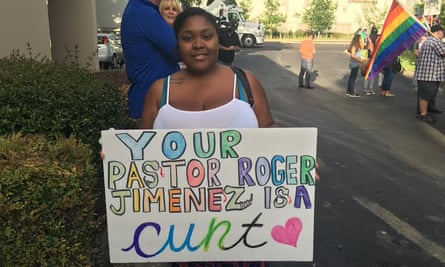 YOUR
PASTOR ROGER
JIMENEZ IS A
cunt